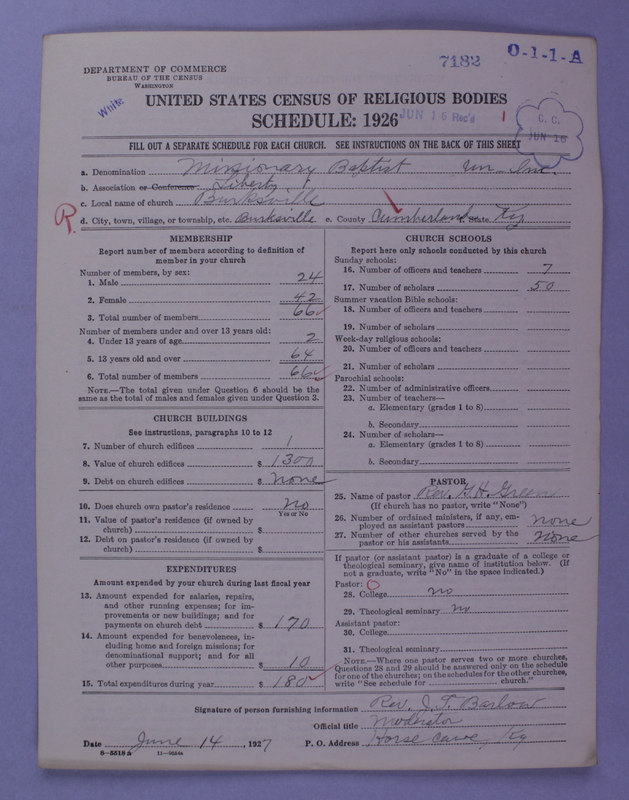 7182
O-1-1-A
DEPARTMENT OF COMMERCE
BUREAU OF THE CENSUS
WASHINGTON
White
UNITED STATES CENSUS OF RELIGIOUS BODIES
JUN 16 Rec'd
SCHEDULE: 1926
C. C.
JUN 16
FILL OUT A SEPARATE SCHEDULE FOR EACH CHURCH. SEE INSTRUCTIONS ON THE BACK OF THIS SHEET
a. Denomination Missionary Baptist Un-Inc.
b. Association or Conference Liberty
c. Local name of church Burksville
R. d. City, town, village, or township, etc. Burksville e. County Cumberland f. State Ky
MEMBERSHIP
Report number of members according to definition of
member in your church
Number of members, by sex:
1. Male 24
2. Female 42
3. Total number of members 66
Number of members under and over 13 years old:
4. Under 13 years of age 2
5. 13 years old and over 64
6. Total number of members 66
NOTE.—The total given under Question 6 should be the
same as the total of males and females given under Question 3.
CHURCH BUILDINGS
See instructions, paragraphs 10 to 12
7. Number of church edifices 1
8. Value of church edifices $ 1300
9. Debt on church edifices $ none
10. Does church own pastor's residence no
Yes or No
11. Value of pastor's residence (if owned by
church) $
12. Debt on pastor's residence (if owned by
church) $
EXPENDITURES
Amount expended by your church during last fiscal year
13. Amount expended for salaries, repairs,
and other running expenses; for im-
provements or new buildings; and for
payments on church debt $ 170
14. Amount expended for benevolences, in-
cluding home and foreign missions; for
denominational support; and for all
other purposes $ 10
15. Total expenditures during year $ 180
CHURCH SCHOOLS
Report here only schools conducted by this church
Sunday schools:
16. Number of officers and teachers 7
17. Number of scholars 50
Summer vacation Bible schools:
18. Number of officers and teachers
19. Number of scholars
Week-day religious schools:
20. Number of officers and teachers
21. Number of scholars
Parochial schools:
22. Number of administrative officers
23. Number of teachers—
a. Elementary (grades 1 to 8)
b. Secondary
24. Number of scholars—
a. Elementary (grades 1 to 8)
b. Secondary
PASTOR
25. Name of pastor Rev. G. H. Green
(If church has no pastor, write "None")
26. Number of ordained ministers, if any, em-
ployed as assistant pastors none
27. Number of other churches served by the
pastor or his assistants none
If pastor (or assistant pastor) is a graduate of a college or
theological seminary, give name of institution below. (If
not a graduate, write "No" in the space indicated.)
Pastor:
28. College no
29. Theological seminary no
Assistant pastor:
30. College
31. Theological seminary
NOTE.—Where one pastor serves two or more churches,
Questions 28 and 29 should be answered only on the schedule
for one of the churches; on the schedules for the other churches,
write "See schedule for church."
Signature of person furnishing information Rev. J. T. Barlow
Official title Moderator
Date June 14, 1927 P. O. Address Horse Cave, Ky
8—5518 A